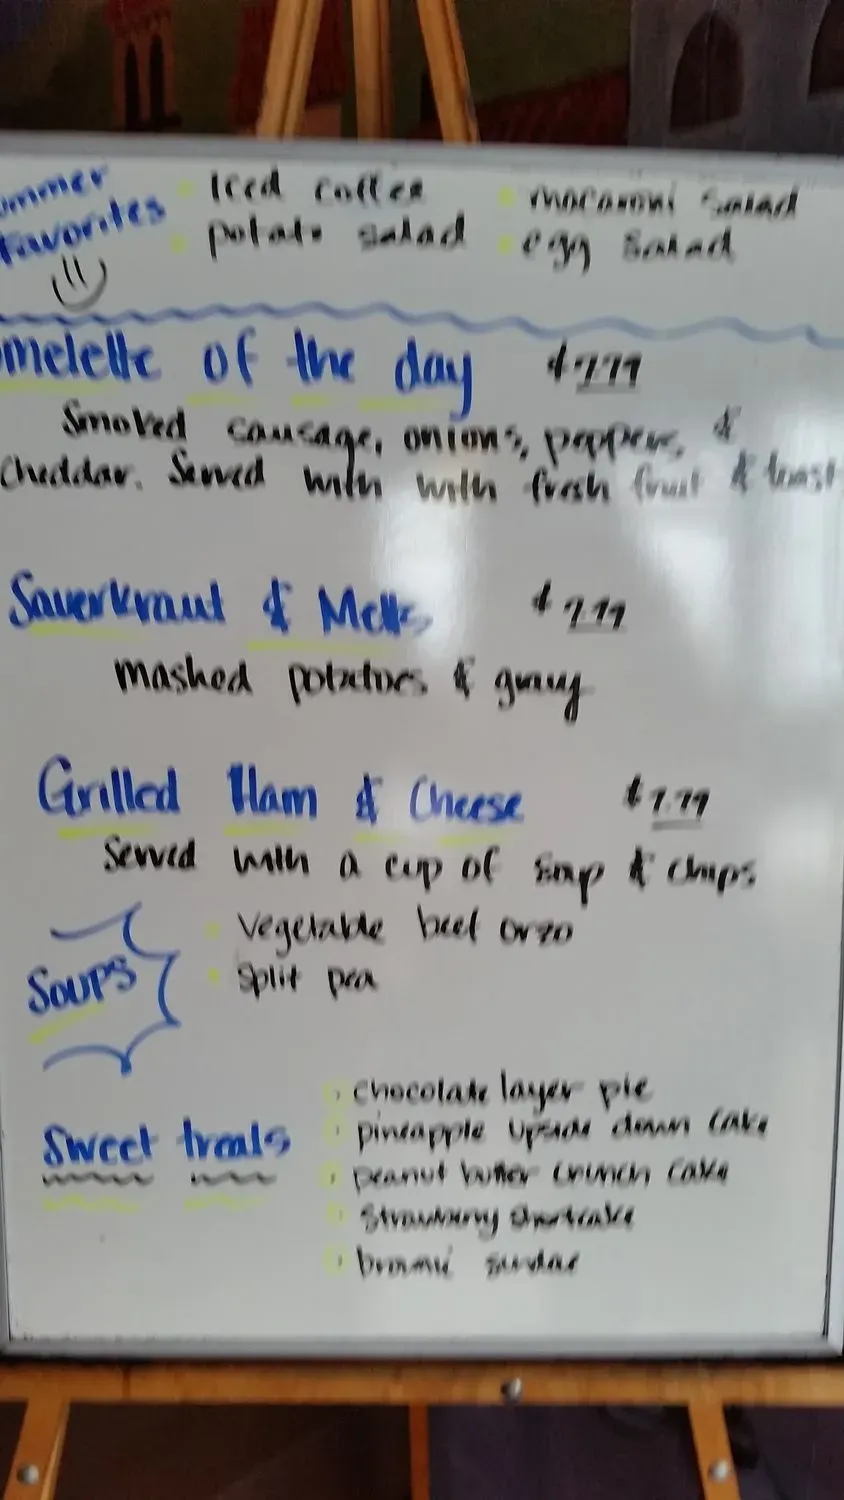 ummer
Favorites
Iced coffee
potato salad
macaroni salad
egg salad
melette of the day $7.79
Smoked sausage, onions, peppers, &
Cheddar. Served with with fresh fruit & toast
Sauerkraut & Metts $7.79
mashed potatoes & gravy
Grilled Ham & Cheese $7.79
Served with a cup of soup & chips
Soups
vegetable beef orzo
split pea
Sweet treats
chocolate layer pie
pineapple upside down cake
peanut butter crunch cake
strawberry shortcake
brownie sundae